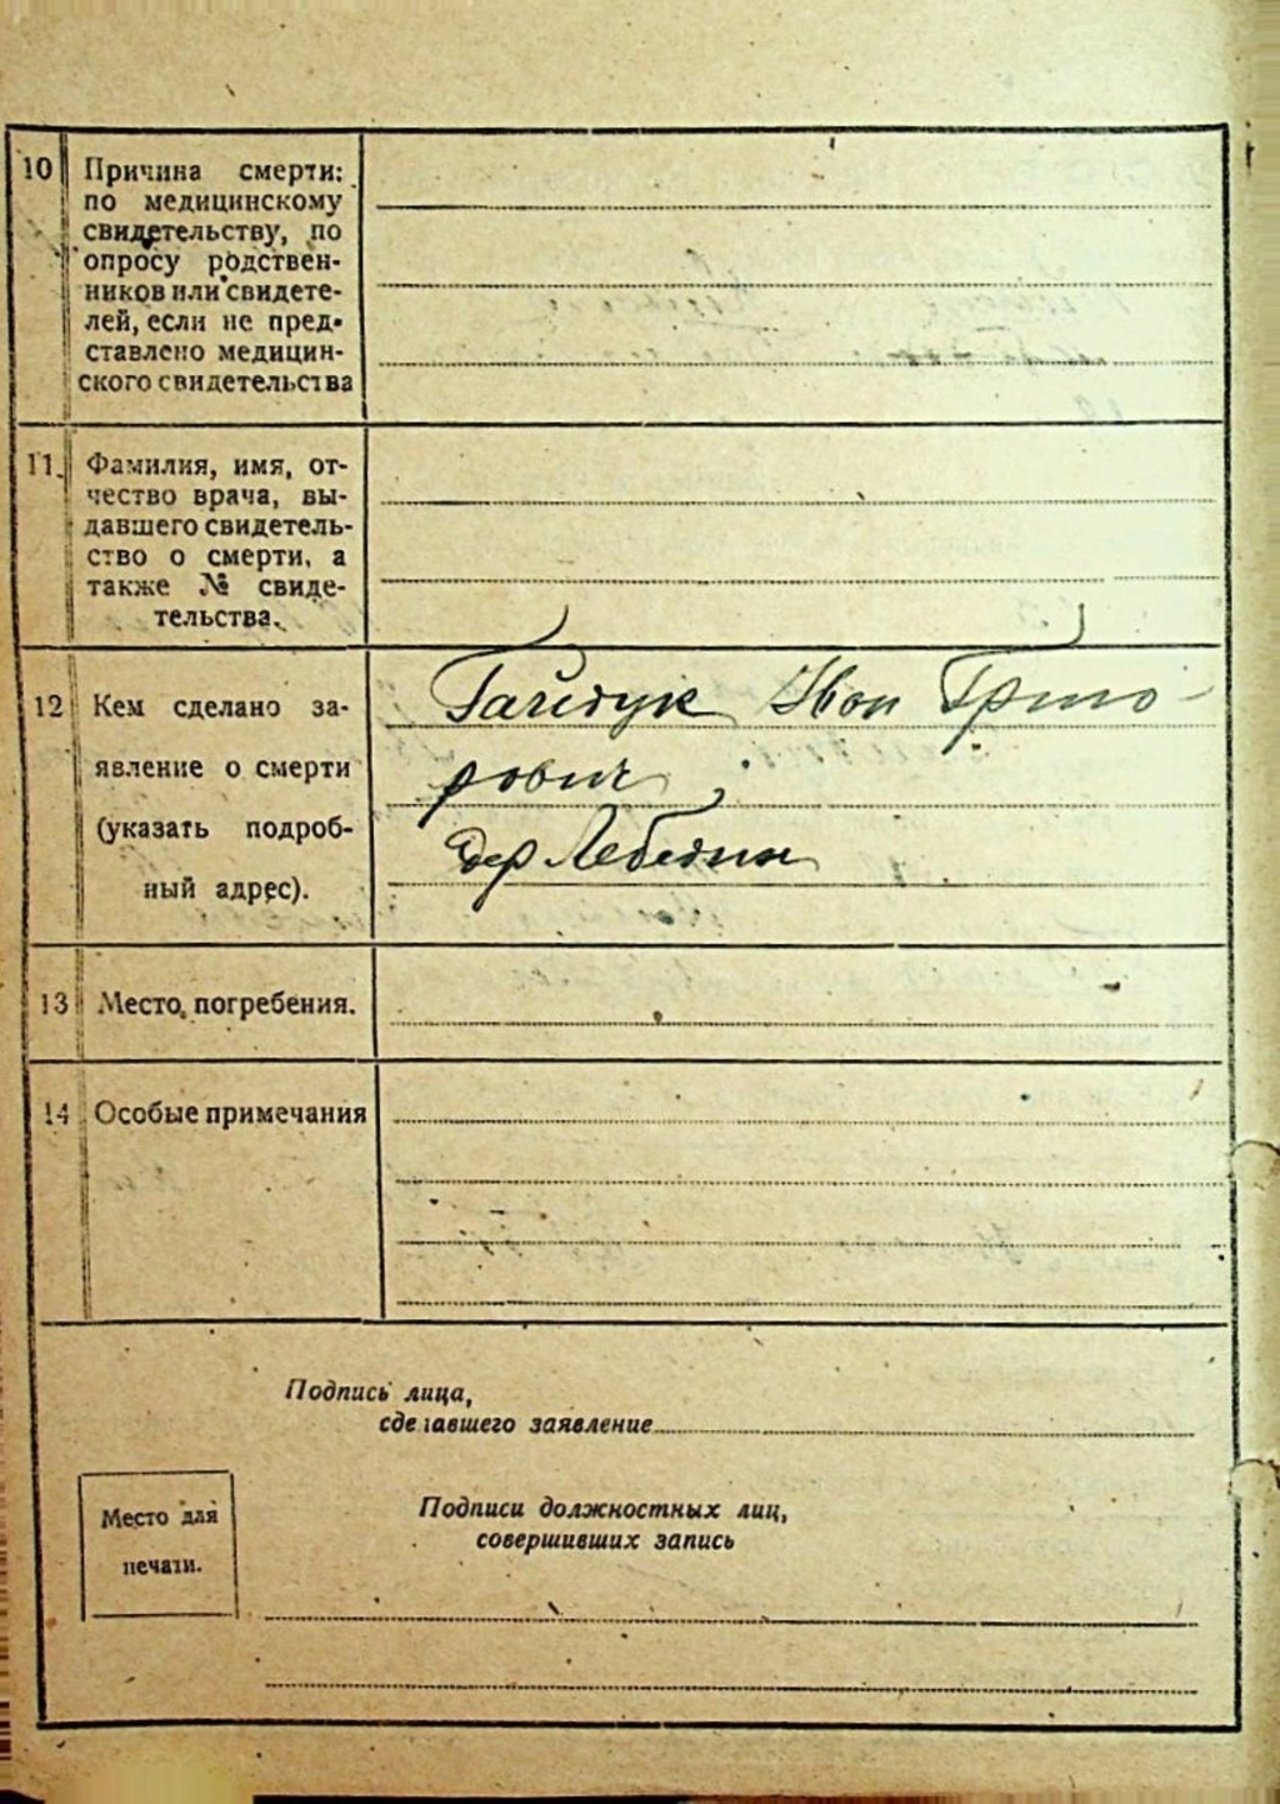 10 Причина смерти:
по медицинскому
свидетельству, по
опросу родствен-
ников или свидете-
лей, если не пред-
ставлено медицин-
ского свидетельства
11. Фамилия, имя, от-
чество врача, вы-
давшего свидетель-
ство о смерти, а
также № свиде-
тельства.
12 Кем сделано за-
явление о смерти
(указать подроб-
ный адрес).
Гайдук Иван Григо-
рович
дер Лебедин
13 Место погребения.
14 Особые примечания
Подпись лица,
сделавшего заявление
Место для
печати.
Подписи должностных лиц,
совершивших запись